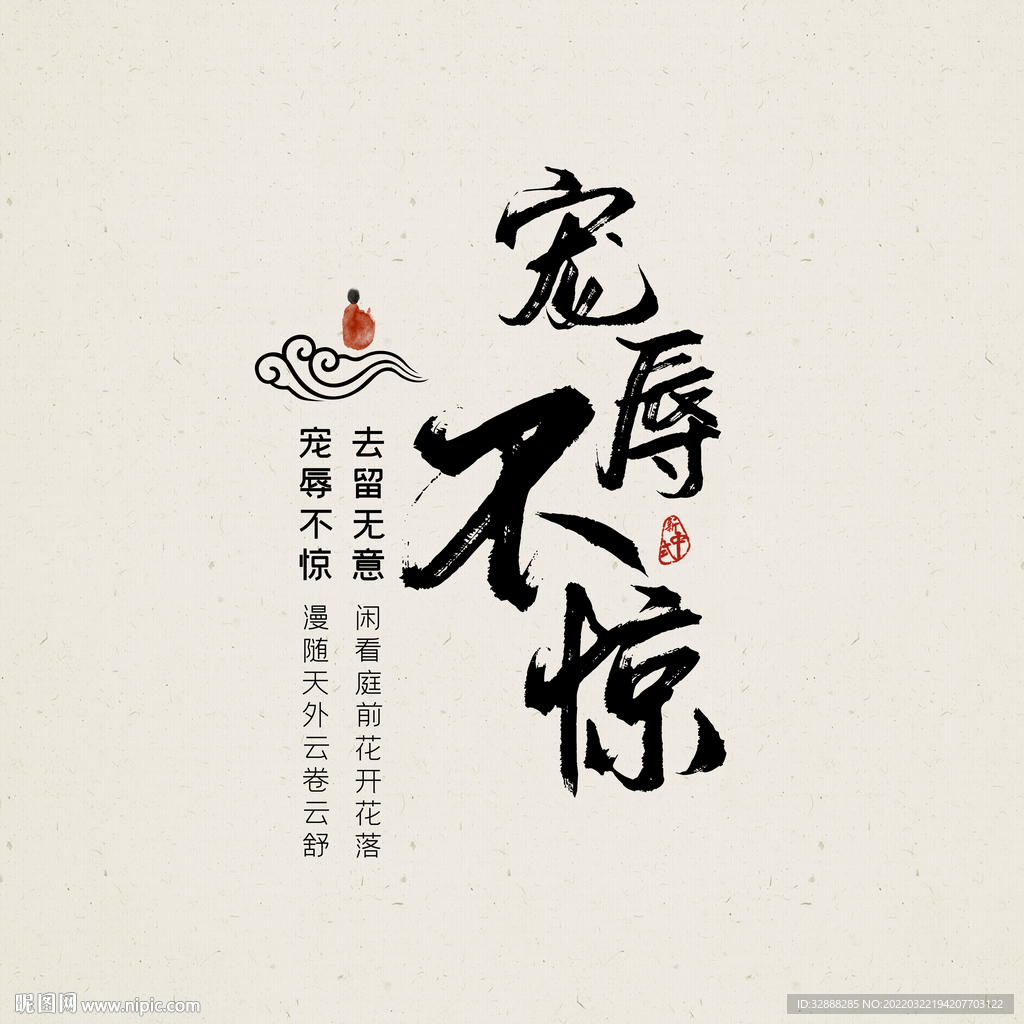 宠辱不惊
新中式
去留无意
闲看庭前花开花落
宠辱不惊
漫随天外云卷云舒
昵图网 www.nipic.com
ID:32888285 NO:20220322194207703122